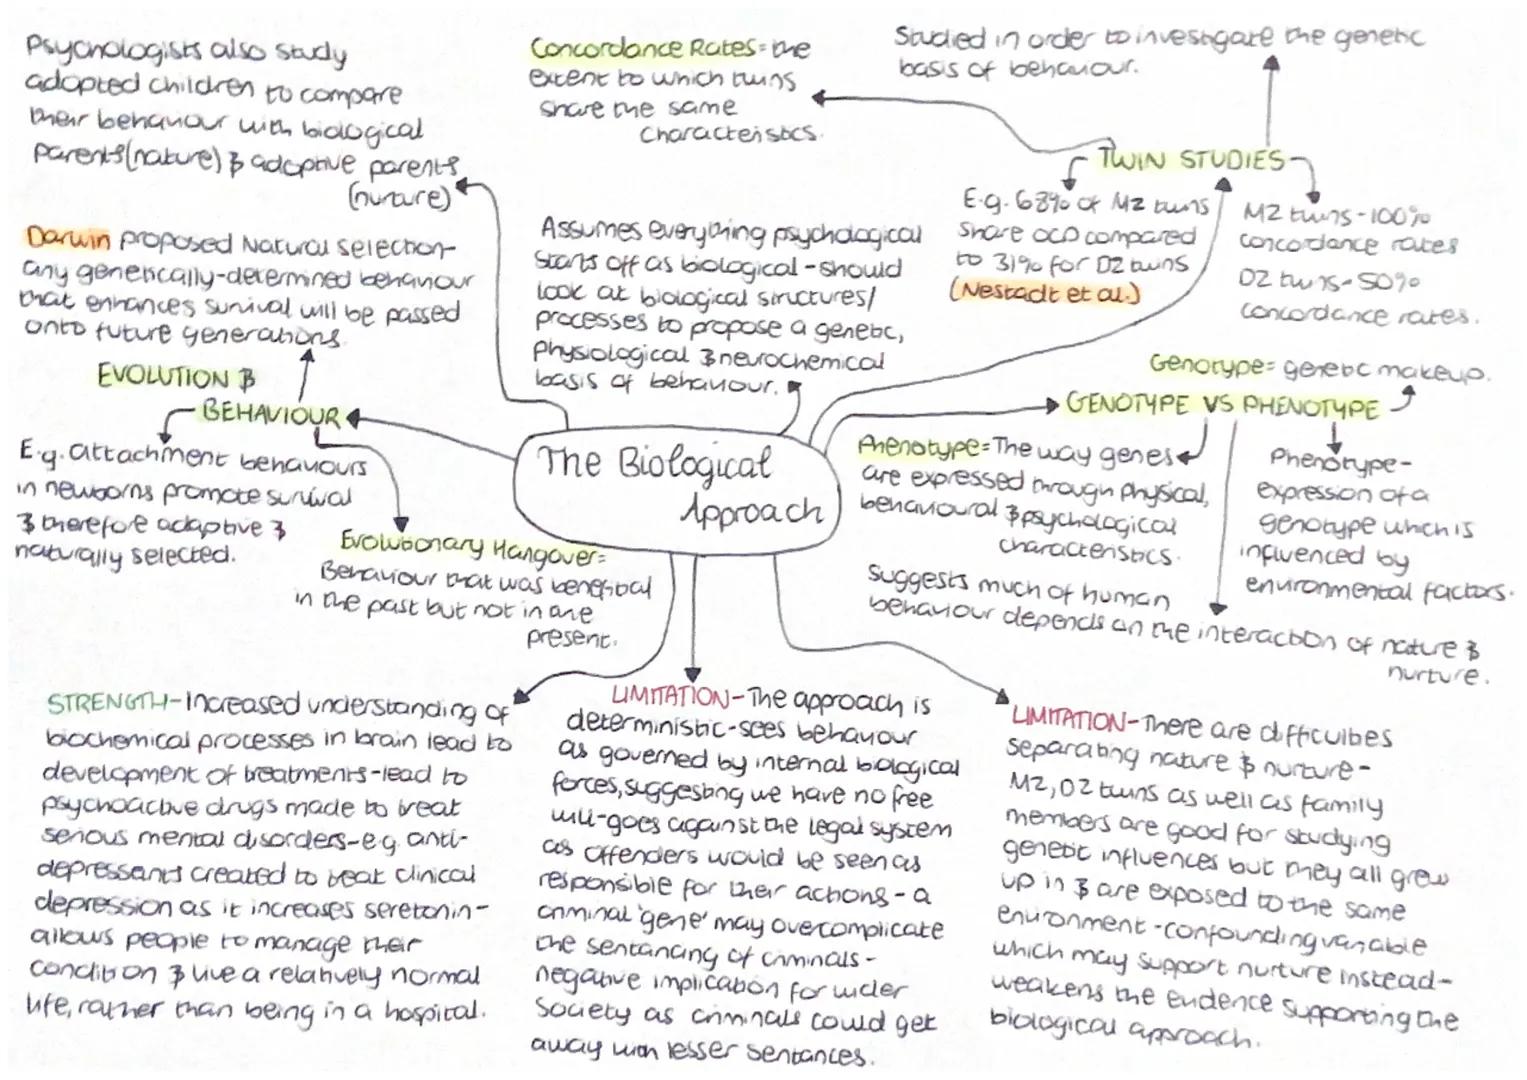 Psychologists also study
adopted children to compare
their behaviour with biological
parents(nature) & adoptive parents
(nurture)
Concordance Rates= the
extent to which twins
share the same
characteristics.
Studied in order to investigate the genetic
basis of behaviour.
TWIN STUDIES
E.g. 68% of MZ twins
share OCD compared
to 31% for DZ twins
(Nestadt et al.)
MZ twins-100%
concordance rates
DZ twins-50%
concordance rates.
Darwin proposed Natural selection-
any genetically-determined behaviour
that enhances survival will be passed
onto future generations.
EVOLUTION &
BEHAVIOUR
E.g. attachment behaviours
in newborns promote survival
& therefore adaptive &
naturally selected.
Evolutionary Hangover=
Behaviour that was beneficial
in the past but not in the
present.
Assumes everything psychological
starts off as biological-should
look at biological structures/
processes to propose a genetic,
physiological & neurochemical
basis of behaviour.
The Biological
Approach
Genotype= genetic makeup.
GENOTYPE VS PHENOTYPE
Phenotype=The way genes
are expressed through physical,
behavioural & psychological
characteristics.
Phenotype-
expression of a
genotype which is
influenced by
environmental factors.
Suggests much of human
behaviour depends on the interaction of nature &
nurture.
STRENGTH-Increased understanding of
biochemical processes in brain lead to
development of treatments-lead to
psychoactive drugs made to treat
serious mental disorders-e.g. anti-
depressants created to treat clinical
depression as it increases seretonin-
allows people to manage their
condition & live a relatively normal
life, rather than being in a hospital.
LIMITATION-The approach is
deterministic-sees behaviour
as governed by internal biological
forces, suggesting we have no free
will-goes against the legal system
as offenders would be seen as
responsible for their actions-a
criminal 'gene' may overcomplicate
the sentancing of criminals-
negative implication for wider
society as criminals could get
away with lesser sentances.
LIMITATION-There are difficulties
separating nature & nurture-
MZ, DZ twins as well as family
members are good for studying
genetic influences but they all grew
up in & are exposed to the same
environment-confounding variable
which may support nurture instead-
weakens the evidence supporting the
biological approach.